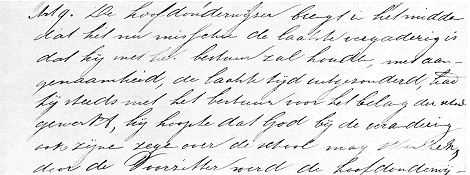 Art 9. De hoofdonderwijzer brengt in het midde
dat het nu misschien de laatste vergadering is
dat hij met het bestuur zal houde, met aan-
genaamheid, de laatste tijd uitgezonderd, had
hij steeds met het bestuur voor het belang der school
gewerkt, hij hoopte dat God bij de verandering
ook zijne zege over de school mag
door de Voorzitter werd de hoofdonderwij-